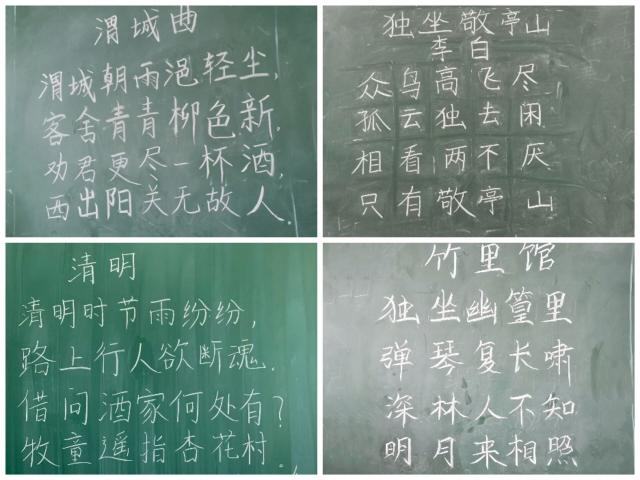 渭城曲
渭城朝雨浥轻尘,
客舍青青柳色新.
劝君更尽一杯酒,
西出阳关无故人.
独坐敬亭山
李白
众鸟高飞尽
孤云独去闲
相看两不厌
只有敬亭山
清明
清明时节雨纷纷,
路上行人欲断魂.
借问酒家何处有?
牧童遥指杏花村.
竹里馆
独坐幽篁里
弹琴复长啸
深林人不知
明月来相照